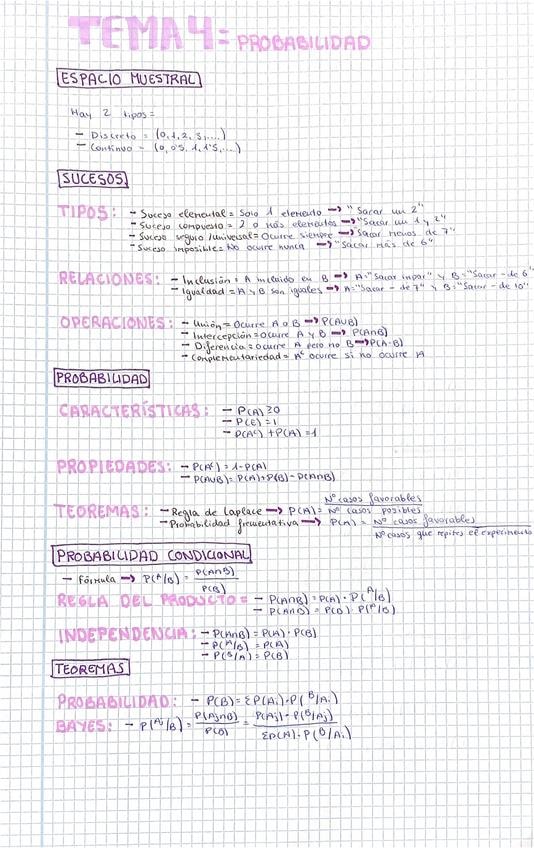 TEMA 4 = PROBABILIDAD
ESPACIO MUESTRAL
Hay 2 tipos =
- Discreto = (0,1,2,3,...)
- Continuo - (0,0'5,1,1'5,...)
SUCESOS
TIPOS: - Suceso elemental = Solo 1 elemento → "Sacar un 2"
- Suceso compuesto = 2 o más elementos → "Sacar un 1 y 2"
- Suceso seguro/universal = Ocurre siempre → "Sacar menos de 7"
- Suceso imposible = No ocurre nunca → "Sacar más de 6"
RELACIONES: - Inclusión = A incluido en B → A = "Sacar impar" y B = "Sacar - de 6"
- Igualdad = A y B son iguales → A = "Sacar - de 7" y B = "Sacar - de 10"
OPERACIONES: - Unión = Ocurre A o B → P(A∪B)
- Intercepción = Ocurre A y B → P(A∩B)
- Diferencia = Ocurre A pero no B → P(A-B)
- Complementariedad = Aᶜ ocurre si no ocurre A
PROBABILIDAD
CARACTERÍSTICAS: - P(A) ≥ 0
- P(E) = 1
- P(Aᶜ) + P(A) = 1
PROPIEDADES: - P(Aᶜ) = 1 - P(A)
- P(A∪B) = P(A) + P(B) - P(A∩B)
TEOREMAS: - Regla de Laplace → P(A) = Nº casos favorables / Nº casos posibles
- Probabilidad frecuentativa → P(A) = Nº casos favorables / Nº casos que repites el experimento
PROBABILIDAD CONDICIONAL
- Fórmula → P(A/B) = P(A∩B) / P(B)
REGLA DEL PRODUCTO = - P(A∩B) = P(A) · P(A/B)
- P(A∩B) = P(B) · P(A/B)
INDEPENDENCIA: - P(A∩B) = P(A) · P(B)
- P(A/B) = P(A)
- P(B/A) = P(B)
TEOREMAS
PROBABILIDAD: - P(B) = ΣP(Aᵢ) · P(B/Aᵢ)
BAYES: - P(Aj/B) = P(Aj∩B) / P(B) = P(Aj) · P(B/Aj) / ΣP(A) · P(B/Aᵢ)